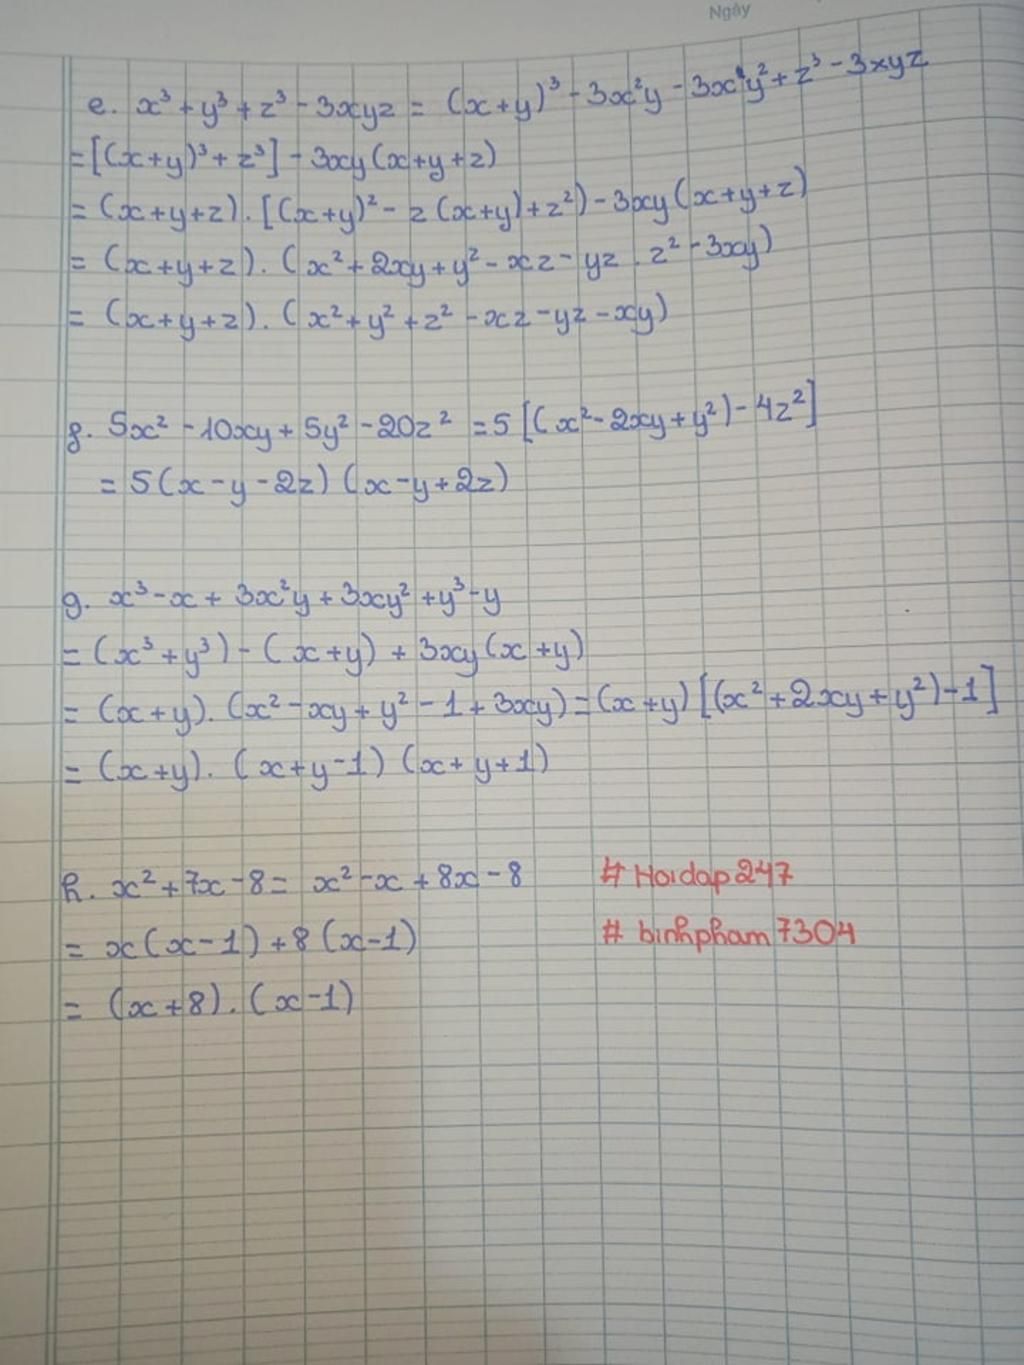 Ngày
e. x³ + y³ + z³ - 3xyz = (x+y)³ - 3x²y - 3xy² + z³ - 3xyz
= [(x+y)³ + z³] - 3xy(x+y+z)
= (x+y+z). [(x+y)² - z(x+y) + z²) - 3xy(x+y+z)
= (x+y+z). (x² + 2xy + y² - xz - yz . z² - 3xy)
= (x+y+z). (x² + y² + z² - xz - yz - xy)
f. 5x² - 10xy + 5y² - 20z² = 5[(x² - 2xy + y²) - 4z²]
= 5(x-y-2z) (x-y+2z)
g. x³ - x + 3x²y + 3xy² + y³ - y
= (x³ + y³) - (x+y) + 3xy(x+y)
= (x+y). (x² - xy + y² - 1 + 3xy) = (x+y)[(x² + 2xy + y²) - 1]
= (x+y). (x+y-1) (x+y+1)
h. x² + 7x - 8 = x² - x + 8x - 8 # Hoidap247
= x(x-1) + 8(x-1) # binhpham7304
= (x+8). (x-1)